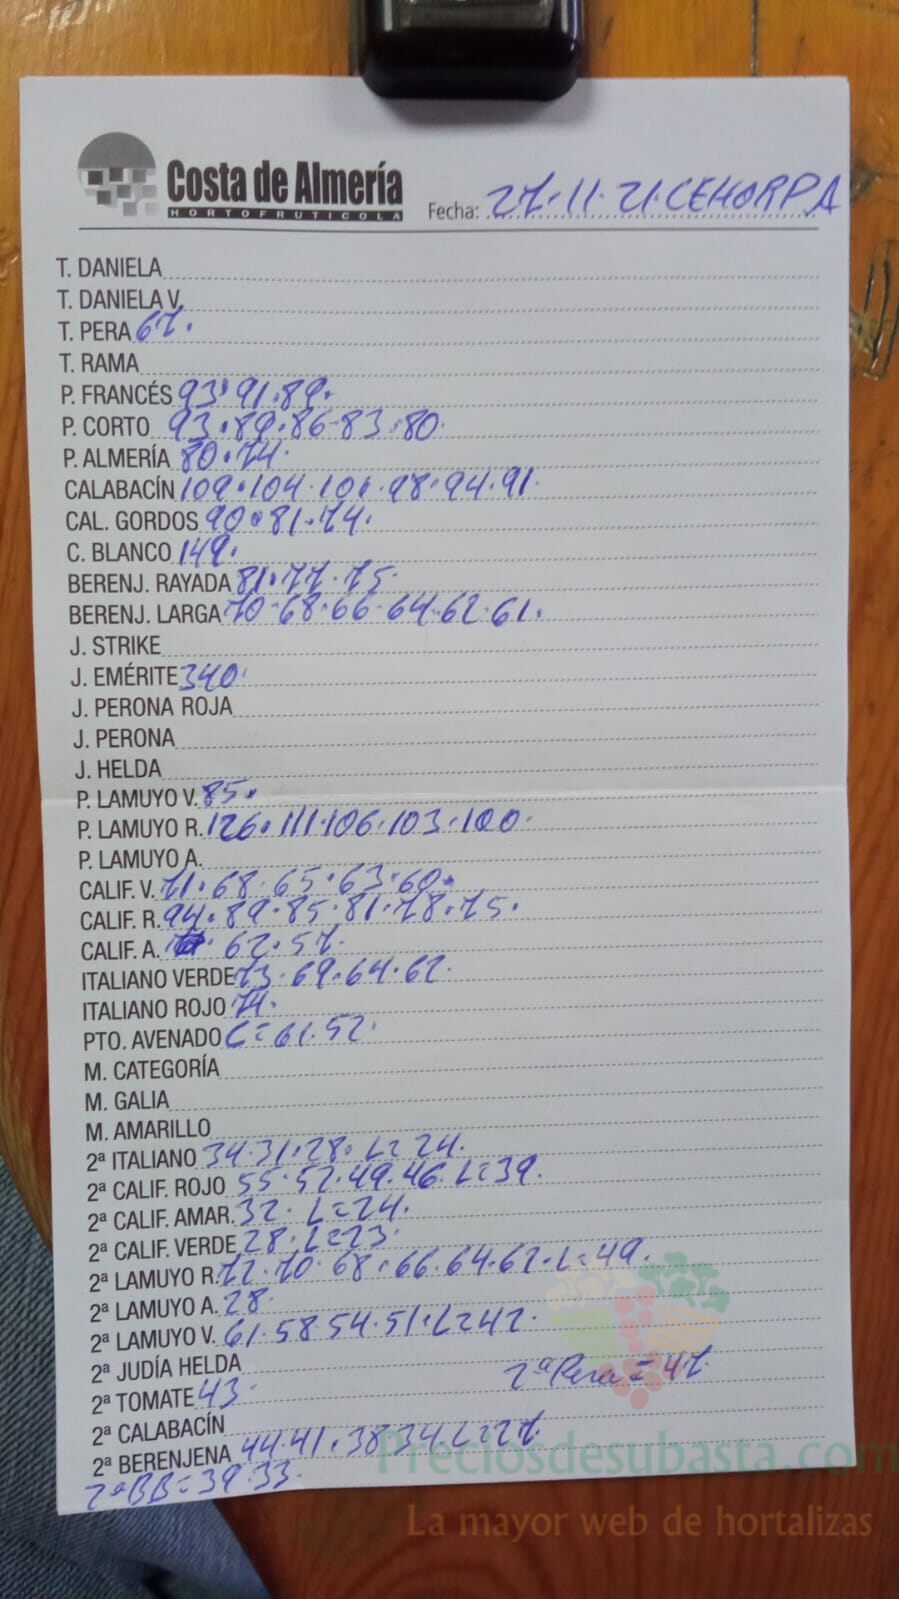 Costa de Almería
HORTOFRUTICOLA
Fecha: 27.11.21.CEHORPA
T. DANIELA
T. DANIELA V.
T. PERA 67.
T. RAMA
P. FRANCÉS 93.91.89.
P. CORTO 93.89.86-83.80.
P. ALMERÍA 80.74.
CALABACÍN 109.104.101.98.94.91.
CAL. GORDOS 90.81.74.
C. BLANCO 149.
BERENJ. RAYADA 81.77.75.
BERENJ. LARGA 70-68.66-64.62.61.
J. STRIKE
J. EMÉRITE 340.
J. PERONA ROJA
J. PERONA
J. HELDA
P. LAMUYO V. 85.
P. LAMUYO R. 126.111.106.103.100.
P. LAMUYO A.
CALIF. V. 71.68.65.63.60.
CALIF. R. 94.89.85.81.78.75.
CALIF. A. 62.57.
ITALIANO VERDE 73.69.64.62.
ITALIANO ROJO 74.
PTO. AVENADO C=61.52.
M. CATEGORÍA
M. GALIA
M. AMARILLO
2ª ITALIANO 34.31.28. L=24.
2ª CALIF. ROJO 55.52.49.46. L=39.
2ª CALIF. AMAR. 32. L=24.
2ª CALIF. VERDE 28. L=23.
2ª LAMUYO R. 72.70.68.66.64.62. L=49.
2ª LAMUYO A. 28.
2ª LAMUYO V. 61.58.54.51. L=42.
2ª JUDÍA HELDA
2ª Pera = 47.
2ª TOMATE 43.
2ª CALABACÍN
2ª BERENJENA 44.41.38.34. L=27.
2ª BB=39.33.
Preciosdesubasta.com
La mayor web de hortalizas